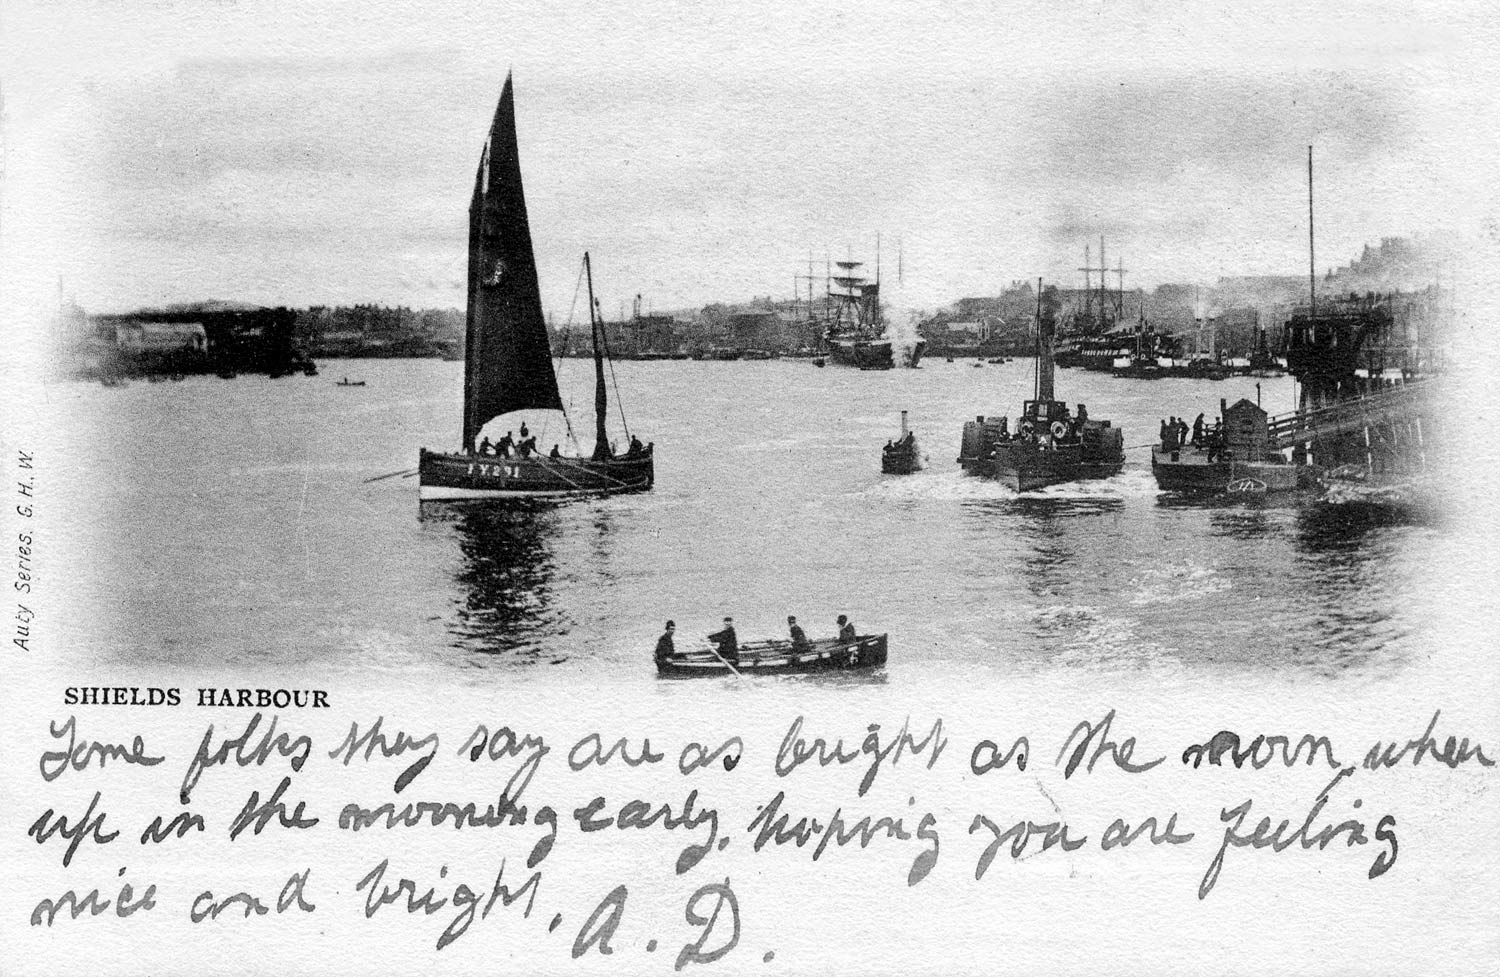 FY291
Auty Series. G.H.,W.
SHIELDS HARBOUR
Some folks they say are as bright as the moon, when
up in the mooning early, hoping you are feeling
nice and bright. A. D.